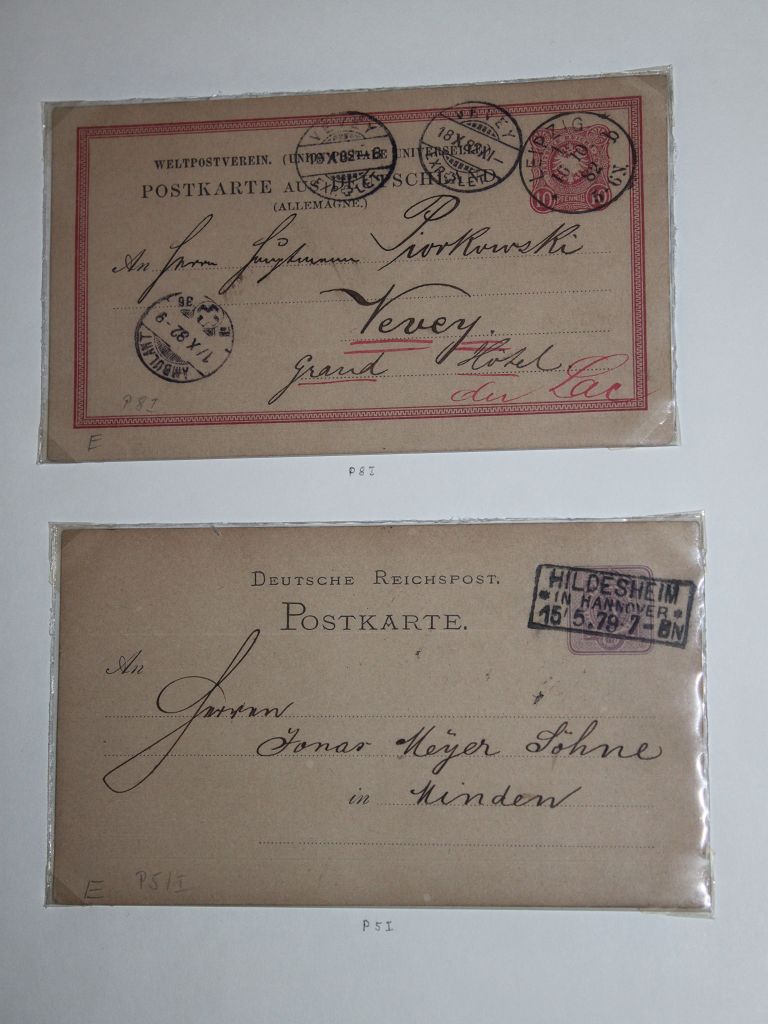 WELTPOSTVEREIN. (UNION POSTALE UNIVERSELLE.)
POSTKARTE AUS DEUTSCHLAND.
(ALLEMAGNE.)
VEVEY
EXP. LET.
VEVEY
18 X 82 XI
EXP. LET.
LEIPZIG 8
16 10 82
10 PFENNIG 10
An Herrn Hauptmann Piorkowski
Vevey.
Grand Hôtel
du Lac
AMBULANT
17 X 82 - 9
36
P8I
E
P8I
DEUTSCHE REICHSPOST.
POSTKARTE.
HILDESHEIM
* IN HANNOVER *
15/5.79 7-8N
An
Herren
Jonas Meÿer Söhne
in Minden
E
P5/I
P5I